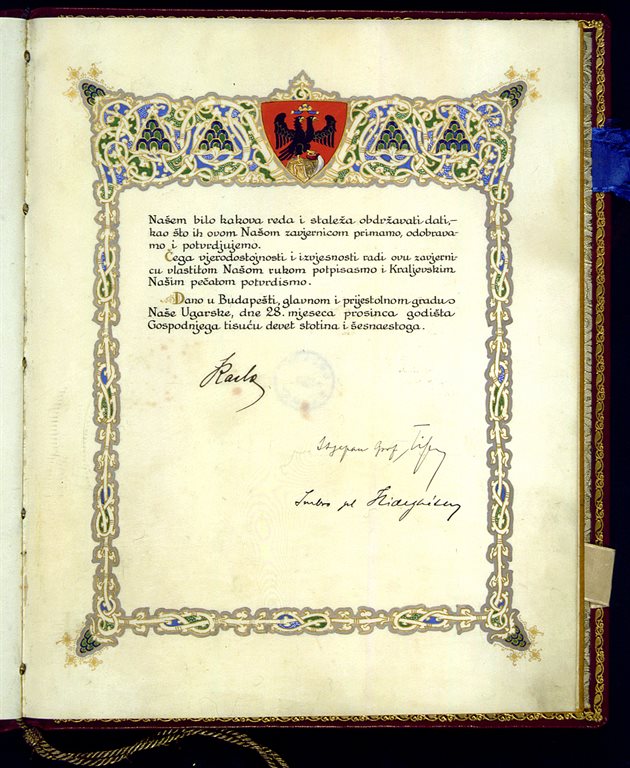 Našem bilo kakova reda i staleža obdržavati dati,-
kao što ih ovom Našom zavjernicom primamo, odobrava-
mo i potvrdjujemo.
Čega vjerodostojnosti i izvjesnosti radi ovu zavjerni-
cu vlastitom Našom rukom potpisasmo i Kraljevskim
Našim pečatom potvrdismo.
Dano u Budapešti, glavnom i prijestolnom gradu
Naše Ugarske, dne 28. mjeseca prosinca godišta
Gospodnjega tisuću devet stotina i šesnaestoga.
Karlo
Stjepan grof Tisza